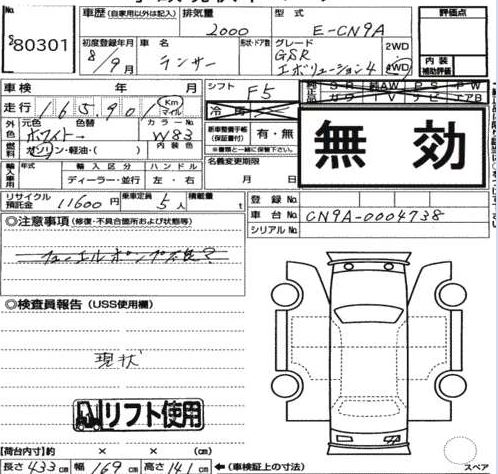 No. S280301
車歴(自家用以外は記入) 排気量 2000 型式 E-CN9A
初度登録年月 8/9月 車名 ランサー 形状・ドア数 グレード GSR エボリューション4 2WD 4WD
評価点
内装補助評価
車検 年 月 シフト F5
走行 165,901 Km マイル 冷房
外色 元色 ホワイト→ 色替 カラーNo. W83
燃料 ガソリン・軽油・( ) 内装色
新車整備手帳(保証書付) 有・無
※書類と一緒に保管して下さい。
無効
輸入車用 年式 輸入区分 ディーラー・並行 ハンドル 左・右
名義変更期限 月 日
リサイクル預託金 11600円 乗車定員 5人 積載量 t
登録No.
車台No. CN9A-0004738
シリアルNo.
◎注意事項(修復・不具合箇所および状態等)
フューエルポンプ不良?
◎検査員報告(USS使用欄)
現状
リフト使用
【荷台内寸】約 × × (cm)
長さ 433cm 幅 169cm 高さ 141cm ←(車検証上の寸法)
スペア